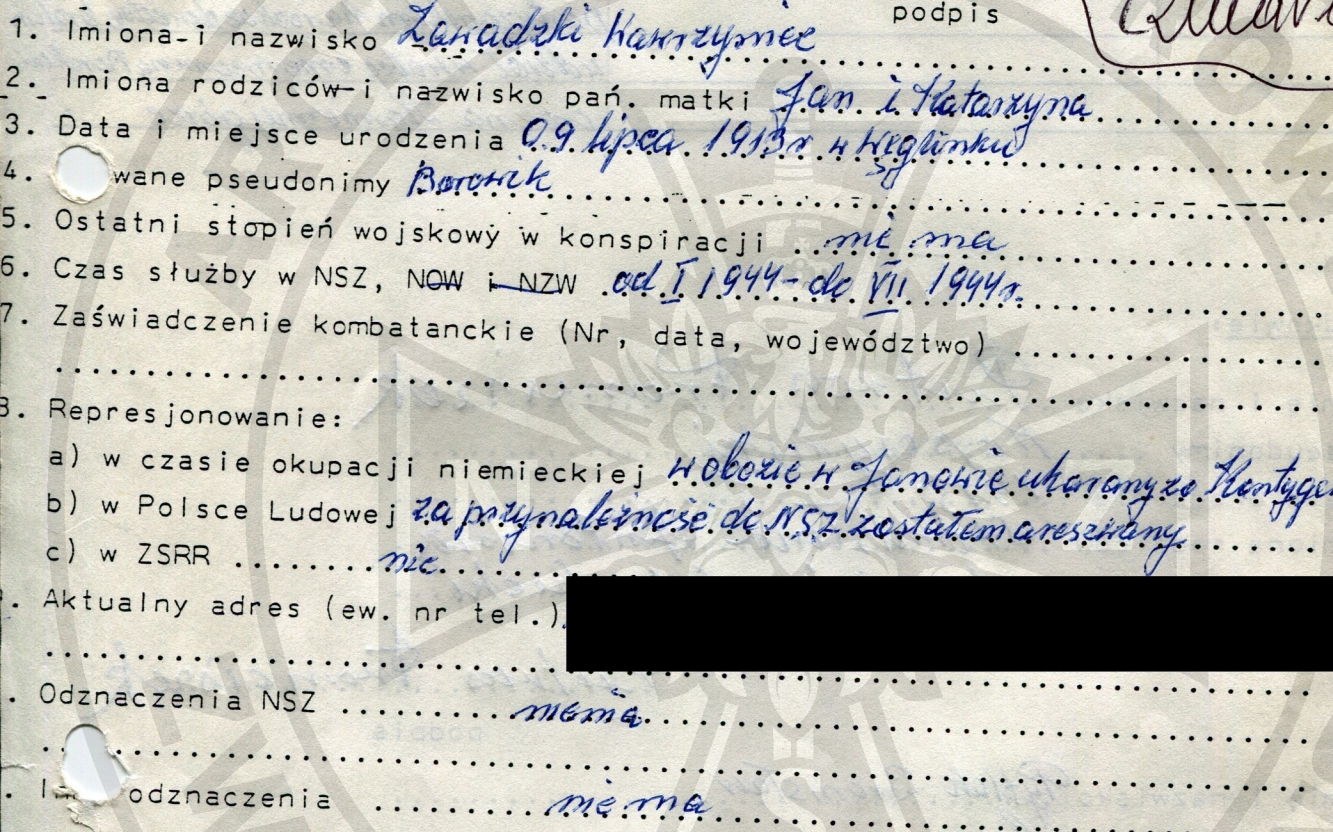 podpis
1. Imiona i nazwisko Zawadzki Kawrzyniec
2. Imiona rodziców i nazwisko pań. matki Jan i Katarzyna
3. Data i miejsce urodzenia 09 lipca 1913r w Węglinku
4. wane pseudonimy Borowik
5. Ostatni stopień wojskowy w konspiracji nie ma
6. Czas służby w NSZ, NOW i NZW od I 1944 - do VII 1944r.
7. Zaświadczenie kombatanckie (Nr, data, województwo)
8. Represjonowanie:
a) w czasie okupacji niemieckiej w obozie w Janowie ukarany za Kontyge
b) w Polsce Ludowej za przynależność do NSZ zostałem areszwany
c) w ZSRR nie
. Aktualny adres (ew. nr tel.)
. Odznaczenia NSZ niema
. I odznaczenia nie ma